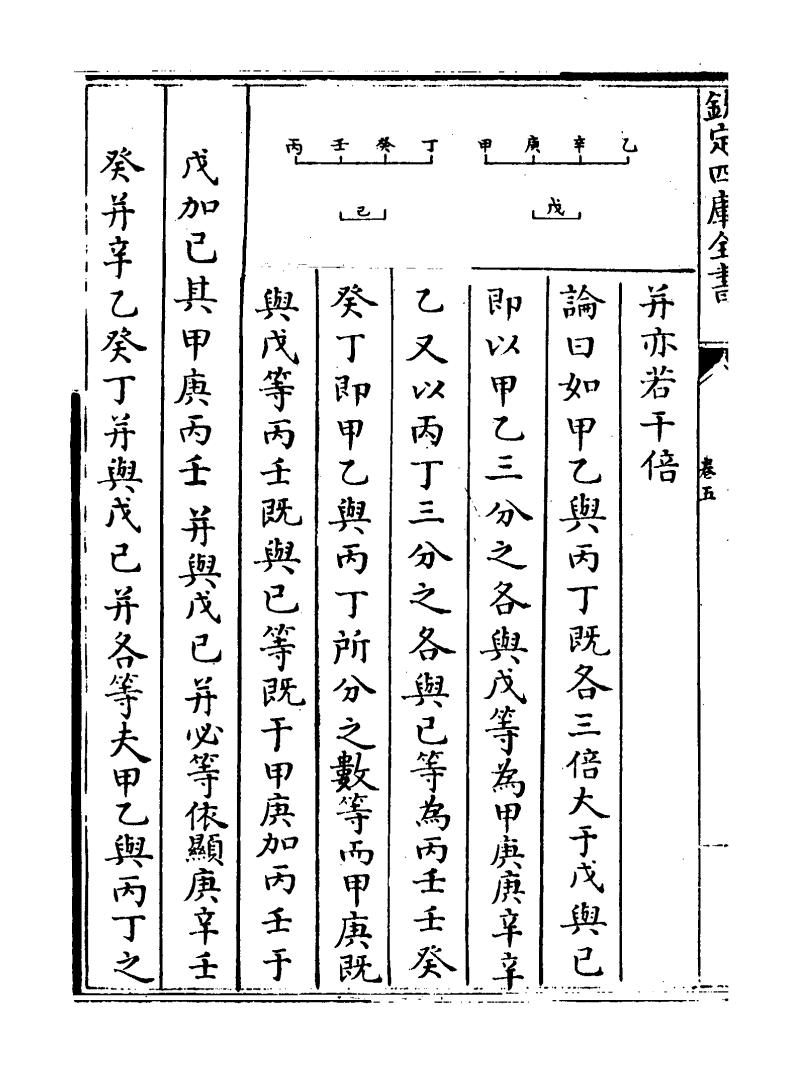 欽定四庫全書
卷五
并亦若干倍
論曰如甲乙與丙丁既各三倍大于戊與己
即以甲乙三分之各與戊等為甲庚庚辛辛
乙又以丙丁三分之各與已等為丙壬壬癸
癸丁即甲乙與丙丁所分之數等而甲庚既
與戊等丙壬既與已等既于甲庚加丙壬于
戊加已其甲庚丙壬并與戊已并必等依顯庚辛壬
癸并辛乙癸丁并與戊已并各等夫甲乙與丙丁之
丙 壬 癸 丁 甲 庚 辛 乙
己 戊